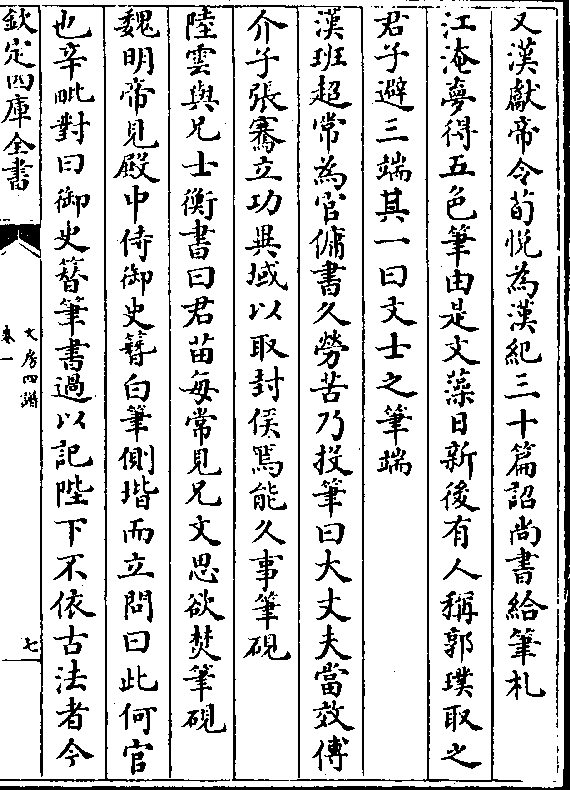 又漢獻帝令荀悅為漢紀三十篇詔尚書給筆札
江淹夢得五色筆由是文藻日新後有人稱郭璞取之
君子避三端其一曰文士之筆端
漢班超常為官傭書久勞苦乃投筆曰大丈夫當效傅
介子張騫立功異域以取封侯焉能久事筆硯
陸雲與兄士衡書曰君苗每常見兄文思欲焚筆硯
魏明帝見殿中侍御史簪白筆側堦而立問曰此何官
也辛毗對曰御史簮筆書過以記陛下不依古法者今
欽定四庫全書
文房四譜
卷一
七